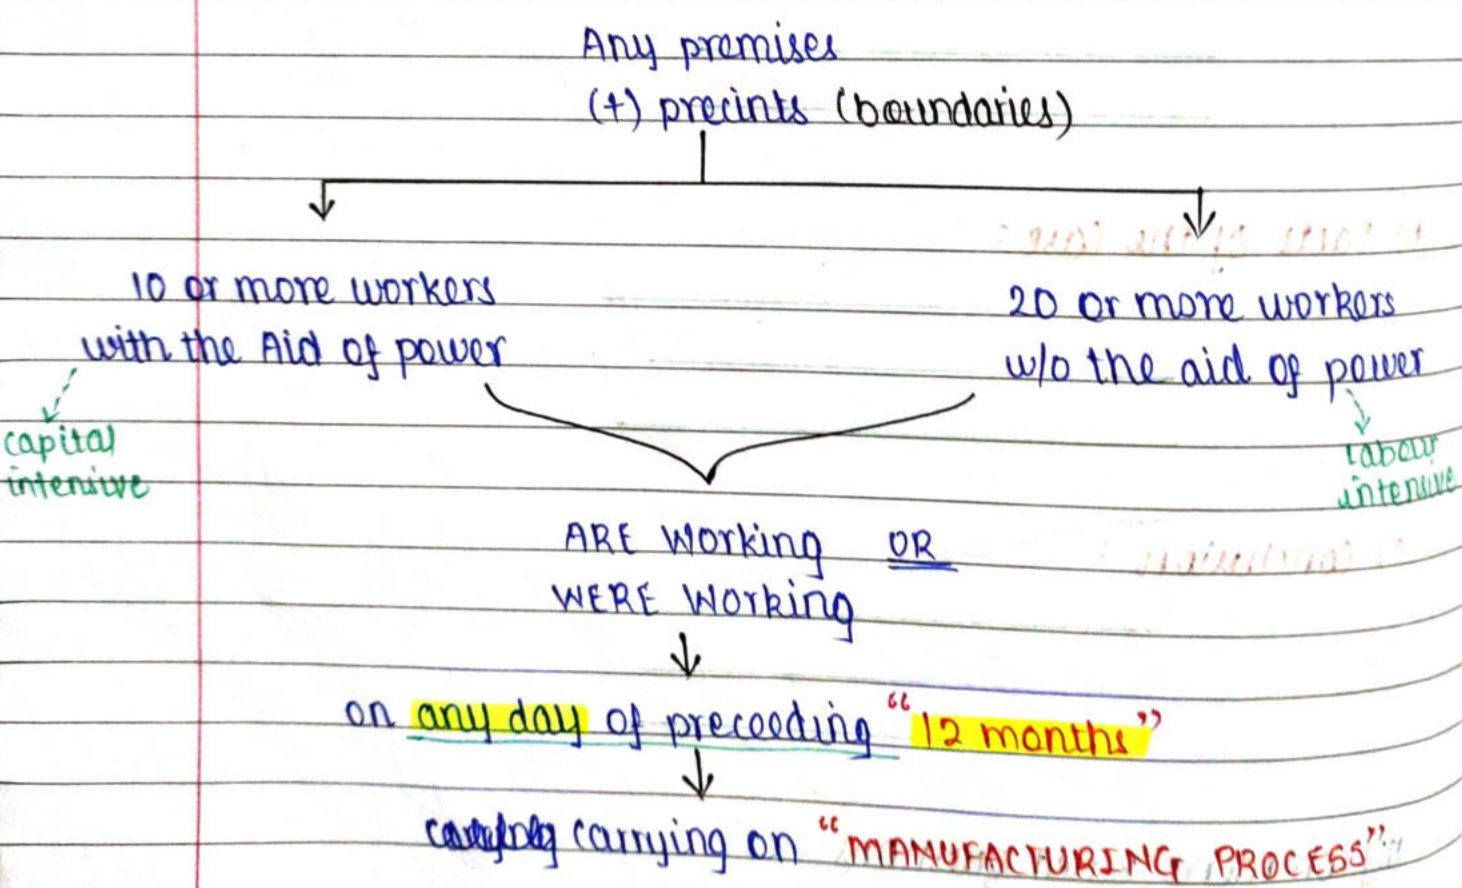 Any premises
(+) precints (boundaries)
10 or more workers
with the Aid of power
20 or more workers
w/o the aid of power
capital
intensive
labour
intensive
ARE Working OR
WERE Working
on any day of preceeding "12 months"
carrying on "MANUFACTURING PROCESS"